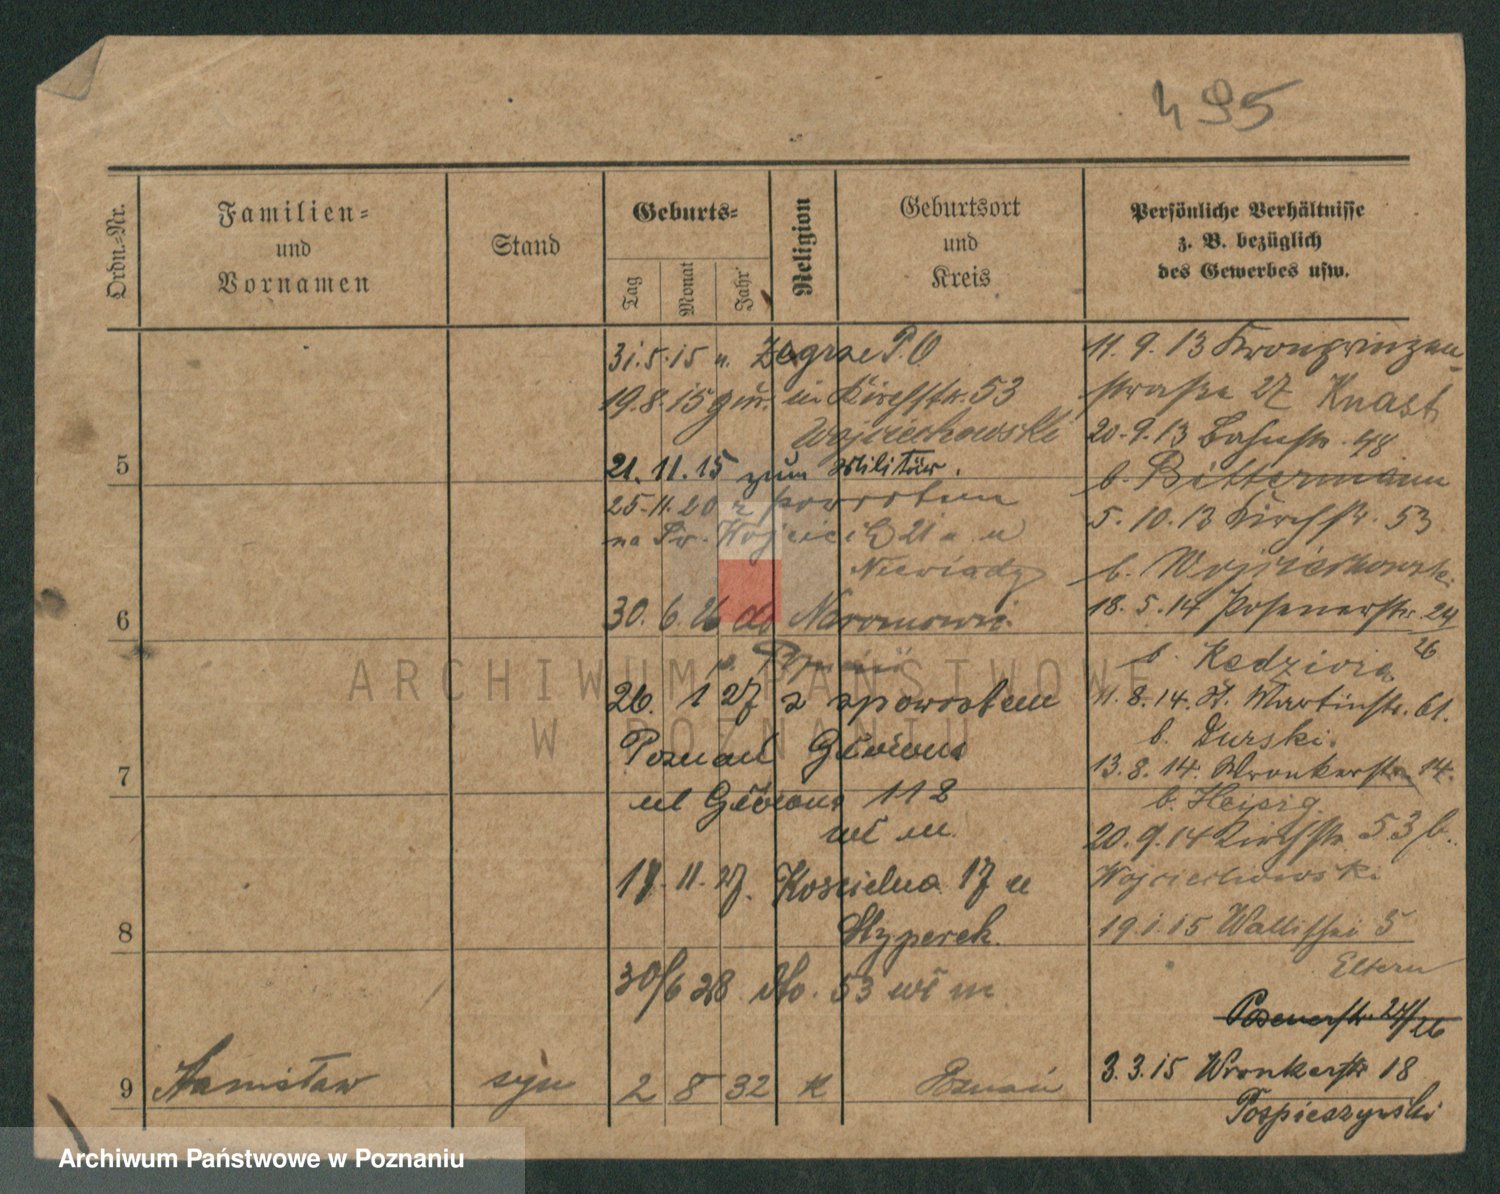 495
Ordn.-Nr.
Familien-
und
Vornamen
Stand
Geburts-
Tag
Monat
Jahr
Religion
Geburtsort
und
Kreis
Persönliche Verhältnisse
z. B. bezüglich
des Gewerbes usw.
31.5.15 n. Zegrze P.O
19.8.15 zur. in Kirchstr. 53
Wojciechowski
5
21.11.15 zum Militär.
25.11.20 z powrotem
na Św. Wojciech 21 a u
Niewiady
6
30.6.26 do Naromowic
p. Poznań
26. 1 27 z spowrotem
Poznań Główna
7
ul Główna 112
wł m.
17.11.27. Koscielna 17 u
Hyperek.
8
30/6 28 dto. 53 wł m
9 Stanisław syn 2 8 32 k Poznań
11.9.13 Kronprinzen-
straße 27 Knast
20.9.13 Bahnstr. 48
b. Bittermann
5.10.13 Kirchstr. 53
b. Wojciechowski.
18.5.14 Posenerstr. 24/26
b. Kedziora
11.8.14. St. Martinstr. 61.
b. Durski.
13.8.14. Wronkerstr. 14.
b. Heisig.
20.9.14 Kirchstr 53 b.
Wojciechowski
19.1.15 Wallischei 5
Eltern
Posenerstr. 24/26
3.3.15 Wronkerstr 18
Pospieszynski
ARCHIWUM PAŃSTWOWE
W POZNANIU
Archiwum Państwowe w Poznaniu